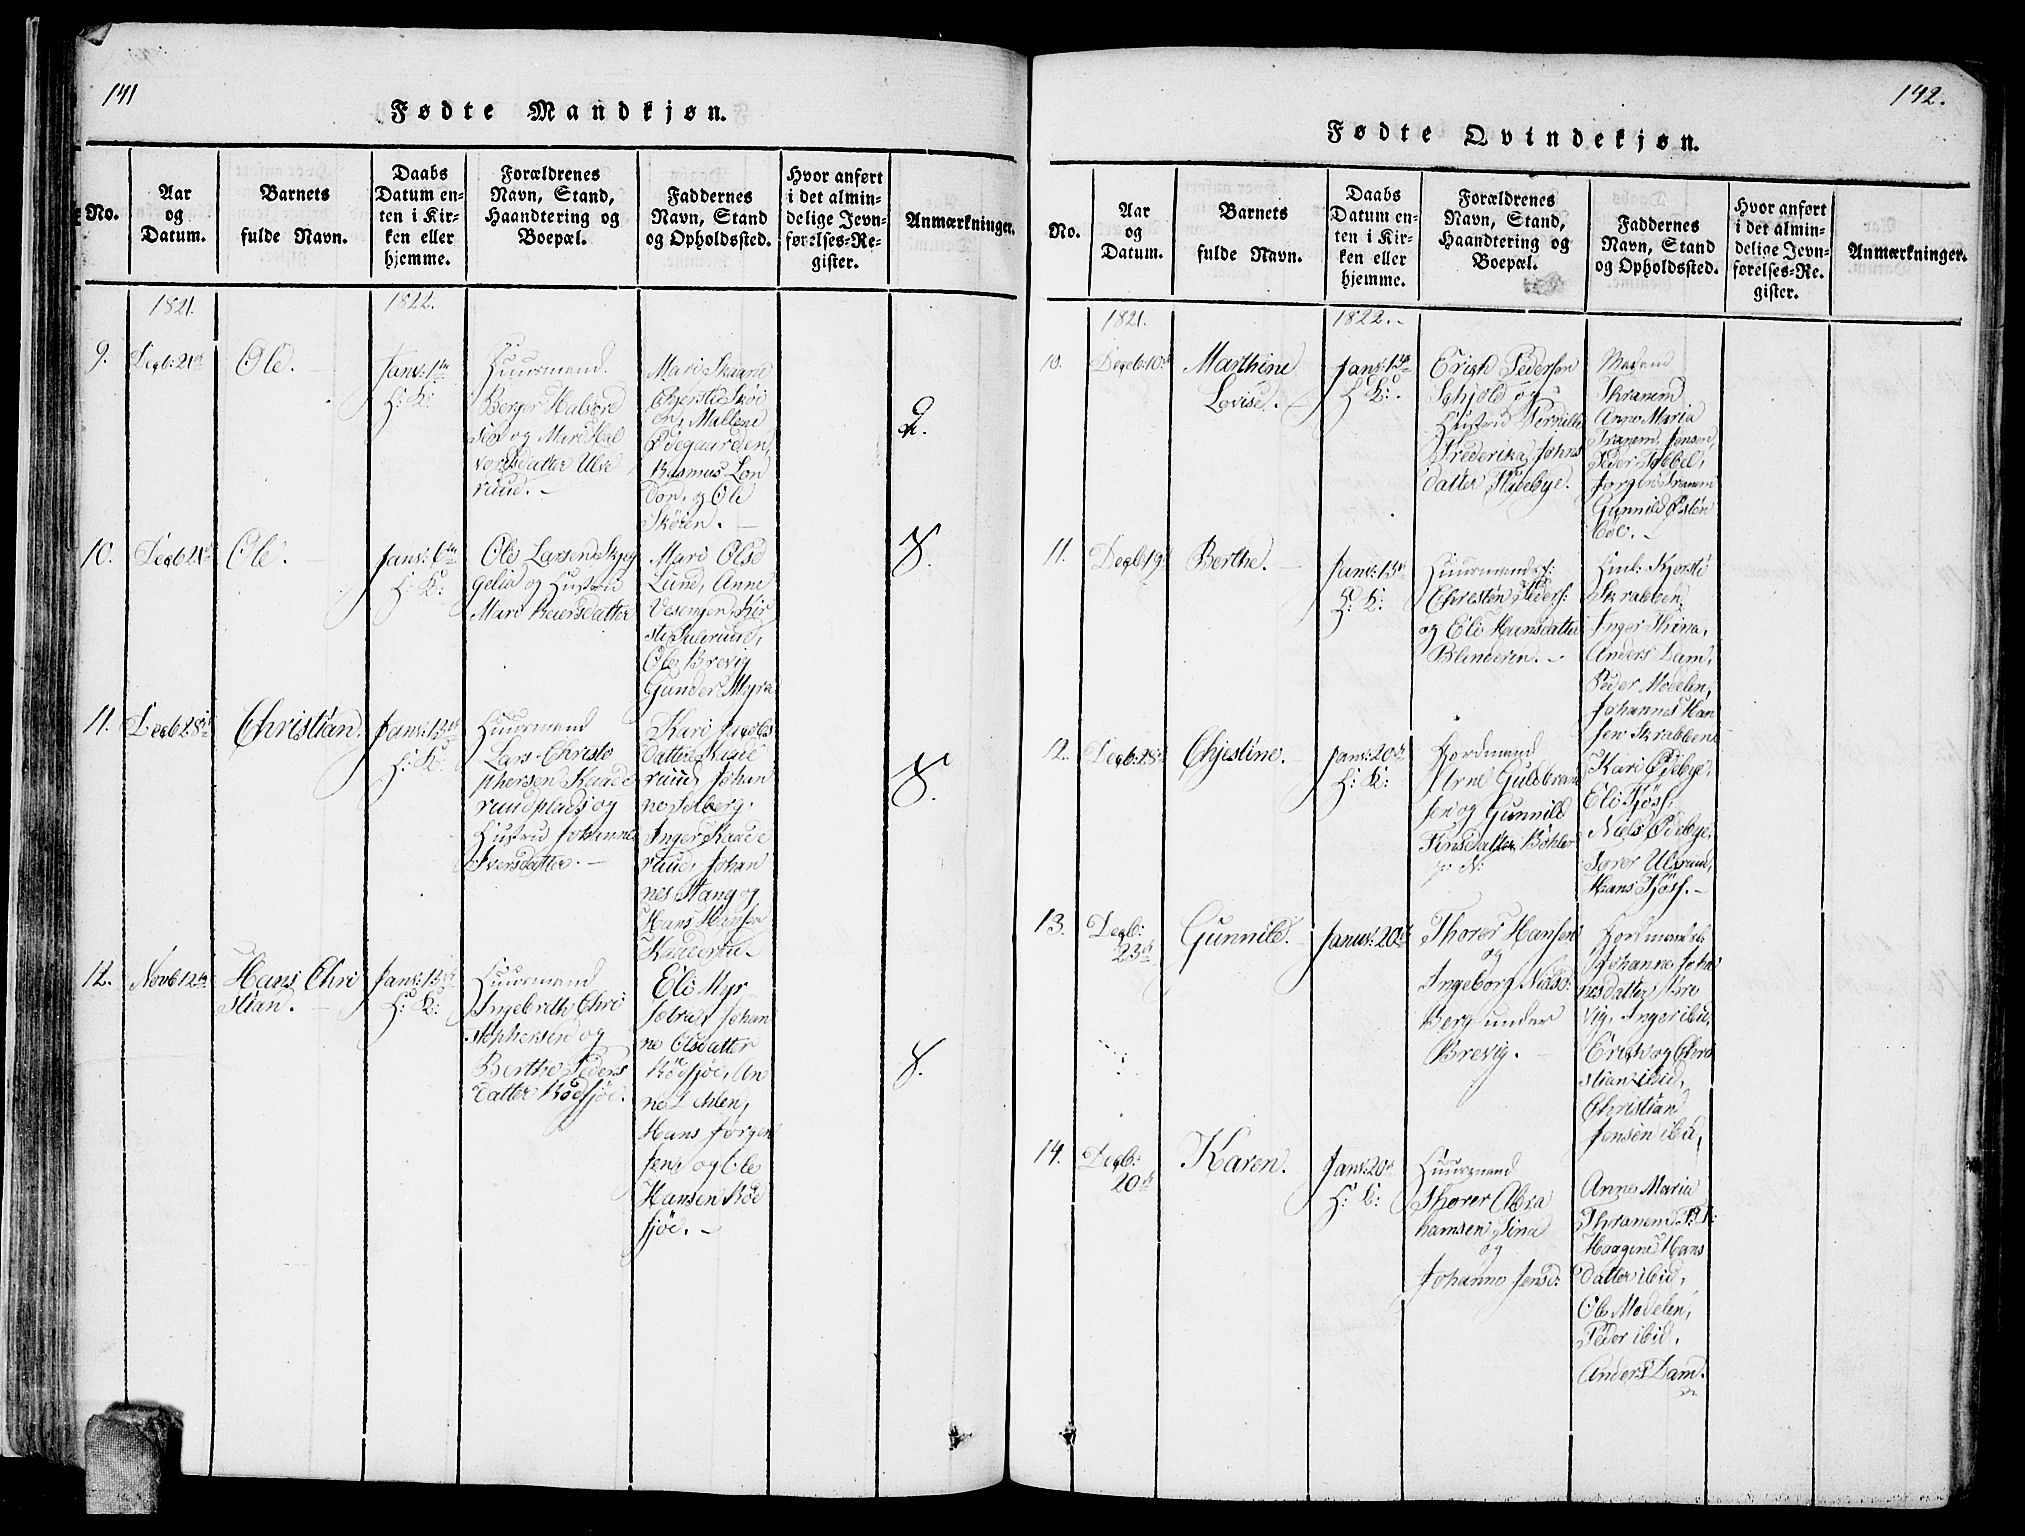 141
Fødte Mandkjøn.
No.
Aar
og
Datum.
Barnets
fulde Navn.
Daabs
Datum en-
ten i Kir-
ken eller
hjemme.
Forældrenes
Navn, Stand,
Haandtering og
Boepæl.
Faddernes
Navn, Stand
og Opholdssted.
Hvor anført
i det almin-
delige Jevn-
førelses-Re-
gister.
Anmærkninger.
1821.
1822.
9.
Decb: 21de
Ole.
Janv: 1ste
H: K:
Huusmand
Berger Halvord
sen og Mari Hal
vorsdatter Ulve
ruud.
Mari Skaane
Chjersti Skøi
en, Mallene
Ødegaarden,
Rasmus Lon
don, og Ole
Skøien.
2.
10.
Decb 21de
Ole.
Janv: 6te
H: K:
Ole Larsen
og Hustrue
Mari Reiersdatter
Mari Olsd
Lund, Anne
Vesengen, Kir
sti Julerud,
Ole Brevig
Gunder Myra
8.
11.
Decb 28de
Christian.
Janv: 13de
H: K:
Huusmand
Lars Christo
phersen Kaade
ruudplads og
Hustrue Johanne
Iversdatter.
Kari Jacobs
datter Kaade
ruud, Johan
ne Solberg,
Inger Kaade
ruud, Johan
nes Stang og
Hans Hansen
Kaaderud.
8.
12.
Novb 12te
Hans Chri
stian.
Janv: 13de
H: K:
Huusmand
Ingebreth Chri
stophersen og
Berthe Peders
datter Rödsjöe.
Eli Myr
Johan
ne Olsdatter
Rödsjöe, An
ne
Hans Jörgen
sen, og Ole
Hansen Röd
sjöe.
8.
142.
Fødte Qvindekjøn.
No.
Aar
og
Datum.
Barnets
fulde Navn.
Daabs
Datum en-
ten i Kir-
ken eller
hjemme.
Forældrenes
Navn, Stand,
Haandtering og
Boepæl.
Faddernes
Navn, Stand
og Opholdssted.
Hvor anført
i det almin-
delige Jevn-
førelses-Re-
gister.
Anmærkninger.
1821.
1822.
10.
Decb: 10de
Marthine
Lovise.
Janv: 13de
H: K:
Erich Pedersen
Schjold og
Hustrue Pernille
Frederika Johns
datter Fladebye.
Madam
Thranem
Anne Maria
Tranem, Jensen,
Peder
Jørgen Tranem
Gunnild Østen
bøe.
11.
Decb 19de
Berthe.
Janv: 13de
H: K:
Huusmand
Christen Peders:
og Eli Hansdatter
Blinderen.
Kjersti
Skrabben,
Inger Thina,
Anders Dam,
Peder Modelen,
Johannes Han
sen Skrabben.
12.
Decb: 28de
Chjestine.
Janv: 20de
H: K:
Gordmand
Arne Guldbrand
sen og Gunnild
Finsdatter Böhler
Kari Ødebye,
Eli Tjösf,
Niels Ødebye,
Torer Ulsrud,
Hans Tjösf.
13.
Decb:
23de
Gunnild.
Janv: 20de
Thorer Hansen
og
Ingeborg Nielsd:
Berg under
Brevig.
Johanne Johan
nesdatter Bre
vig, Inger ibid,
Erich og Chri
stian ibid,
Christian
Jensen ibid,
14.
Decb:
20de
Karen.
Janv: 20de
H: K:
Huusmand
Thorer Abra
hamsen Tina
og
Johanne Jensd:
Anne Maria
Thranem
Haagine Hans
datter ibid,
Ole Modelen,
Peder ibid,
Anders Dam.